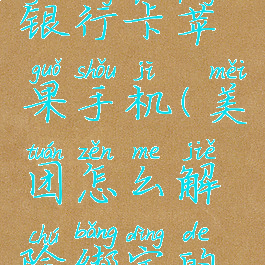 银行卡苹
guǒ shǒu jī ( měi
果手机(美
tuán zěn me jiě
团怎么解
chú bǎng dìng de
除绑定的